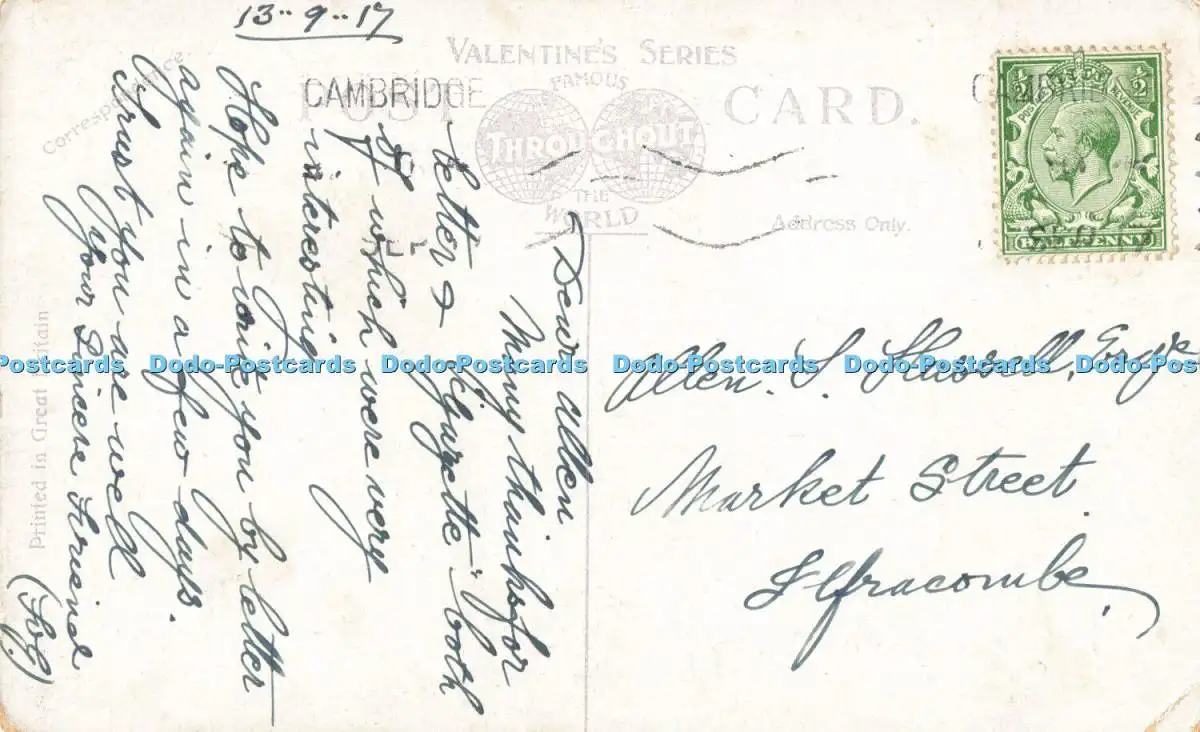 13-9-17
VALENTINE'S SERIES
FAMOUS
POST CARD.
THROUGHOUT
THE
WORLD
CAMBRIDGE
Correspondence.
Address Only.
Printed in Great Britain
½ ½
POSTAGE REVENUE
HALFPENNY
Dear Allen.
Many thanks for
letter & "Gazette" both
of which were very
interesting
Hope to write you by letter
again in a few days.
Trust you are well
Your Sincere Friend
Allen. S. Esqre
Market Street.
Ilfracombe,
Postcards Dodo-Postcards Dodo-Postcards Dodo-Postcards Dodo-Postcards Dodo-Postcards